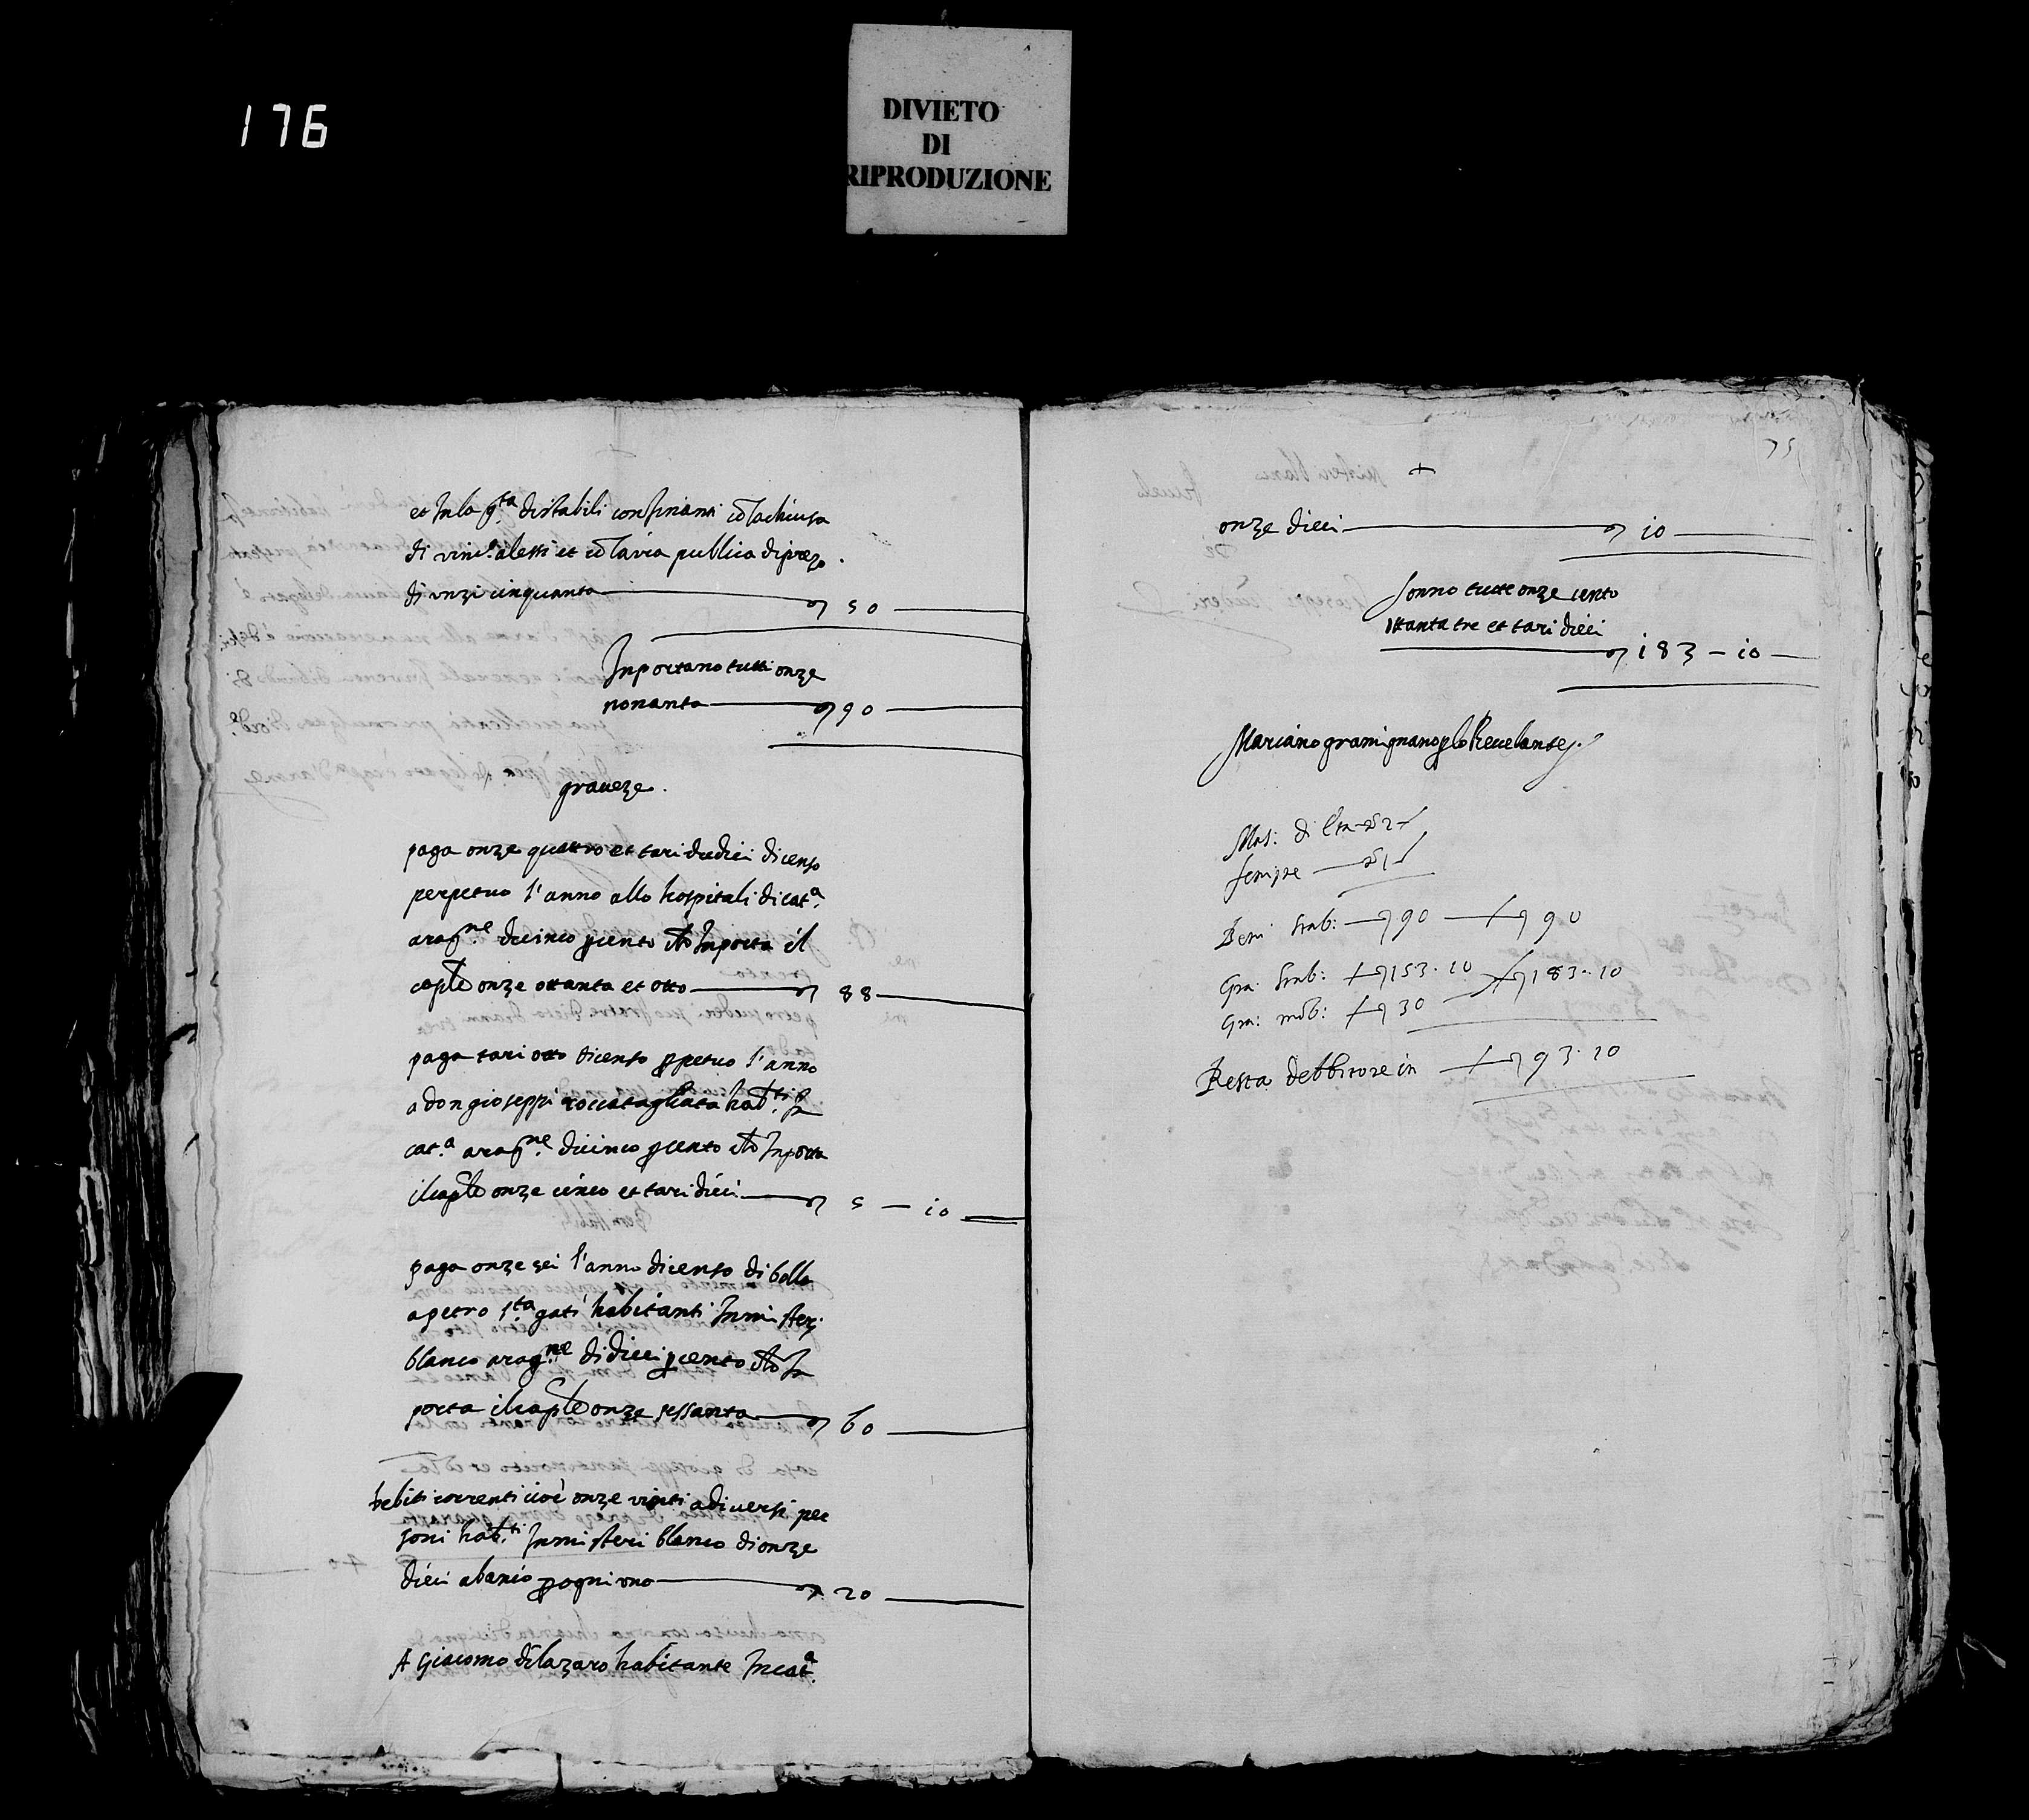 176
DIVIETO
DI
RIPRODUZIONE
et In la q.ta di stabili confinanti cō la chiusa
di vinc.o alessi et cō la via publica di prezo
di unzi cinquanta 50
Inportano tutti onze
nonanta 90
graveze.
paga onze quattro et tari dudici di censo
perpetuo l'anno allo hospitali di cat.a
a rag.ne di cinco p cento Inporta il
cap.le onze ottanta et otto 88
paga tari otto di censo ppetuo l'anno
a don gioseppi roccatagliata hab.ti In
cat.a a rag.ne di cinco p cento Inporta
il cap.le onze cinco et tari dieci 5 - 10
paga onze sei l'anno di censo di bolla
a petro s.ta gati habitanti In misteri
blanco a rag.ne di dieci p cento In
porta il cap.le onze sessanta 60
debiti correnti cioè onze vinti a diversi per
soni hab.ti In misteri blanco di onze
dieci a banio p ogni uno 20
A Giacomo di lazaro habitante In cat.a
75
+
onze dieci 10
sonno tutte onze cento
ottanta tre et tari dieci
183 - 10
Mariano gramignano p lo Revelante
Mas: di 2
femine 1
Beni stab: 90 90
Gra: stab: 153. 10 183. 10
Gra: mob: 30
Resta debbitore in 93. 10